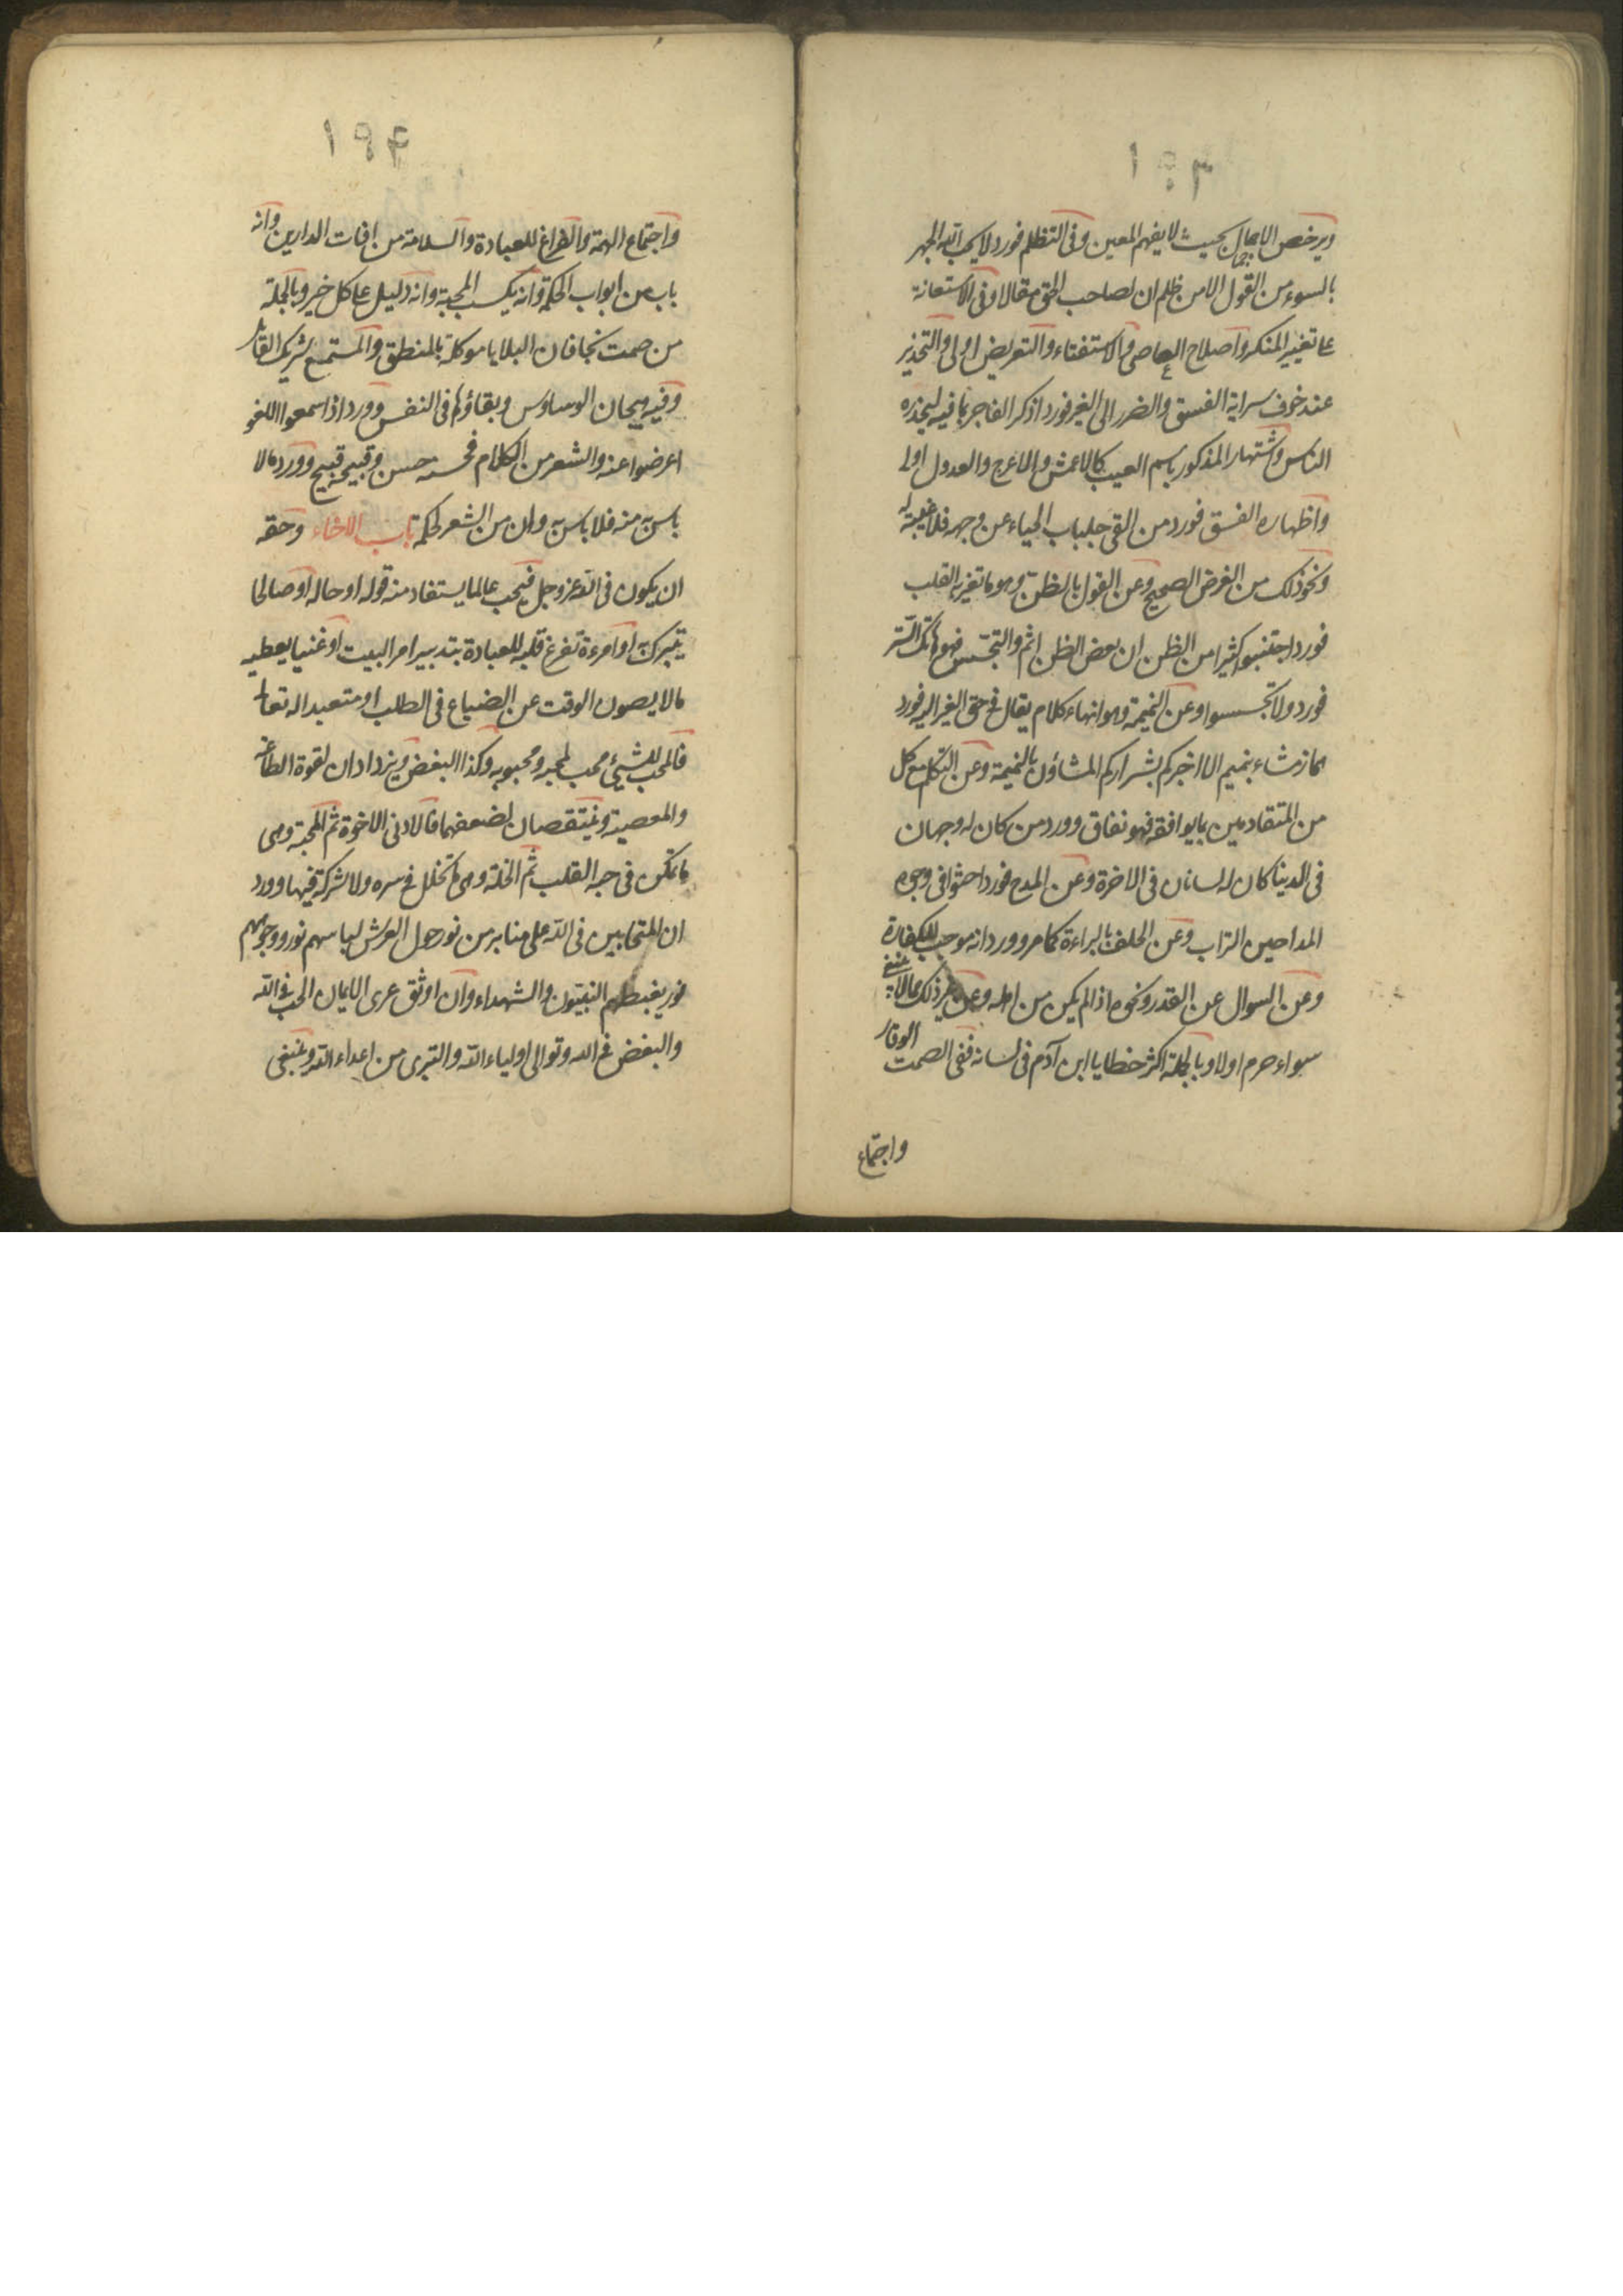 ١٩٣
ويرخص الاجمال بحيث لا يفهم المعين وفى التظلم فورد لا يحب الله الجهر
بالسوء من القول الا من ظلم ان لصاحب الحق مقالا وفى الاستعانة
على تغيير المنكر واصلاح العاصى والاستفتاء والتعريض اولى والتحذير
عند خوف سراية الفسق والضرر الى الغير فورد اذكر الفاجر بما فيه ليحذره
الناس واشتهار المذكور باسم العيب كالاعمش والاعرج والعدول اولى
واظهاره الفسق فورد من القى جلباب الحياء عن وجهه فلا غيبة له
ونحو ذلك من الغرض الصحيح وعن القول بالظن وهو ما تغير به القلب
فورد اجتنبوا كثيرا من الظن ان بعض الظن اثم والتجسس فهو هاتك الستر
فورد ولا تجسسوا وعن النميمة وهو انهاء كلام يقال فى حق الغير اليه فورد
هماز مشاء بنميم الا اخبركم بشراركم المشاؤن بالنميمة وعن التكلم مع كل
من المتعاديين بما يوافقه فهو نفاق وورد من كان له وجهان
فى الدنيا كان له لسانان فى الاخرة وعن المدح فورد احثوا فى وجوه
المداحين التراب وعن الحلف بالبراءة كما مر وورد انه موجب للكفارة
وعن السوال عن القدر ونحوه اذا لم يكن من اهله وعن غير ذلك مما لا ينبغى
سواء حرم اولا وبالجملة اكثر خطايا ابن آدم فى لسانه ففى الصمت الوقار
واجتماع
١٩۴
واجتماع الهمة والفراغ للعبادة والسلامة من افات الدارين وانه
باب من ابواب الحكمة وانه يكسب المحبة وانه دليل على كل خير وبالجملة
من صمت نجا فان البلايا موكلة بالمنطق والمستمع شريك القايل
وفيه هيجان الوساوس وبقاؤها فى النفس وورد اذا سمعوا اللغو
اعرضوا عنه والشعر من الكلام فحسنه حسن وقبيحه قبيح وورد ما لا
باس به منه فلا باس به وان من الشعر لحكمة باب الاخاء وحقه
ان يكون فى الله عز وجل فيحب عالما يستفاد منه قوله او حاله او صالحا
يتبرك به او امرءة تفرغ قلبه للعبادة بتدبير امر البيت او غنيا يعطيه
مالا يصون الوقت عن الضياع فى الطلب او متعبدا له تعالى
فالمحب للشيئ محب لمحبه ومحبوبه وكذا البغض ويزدادان لقوة الطاعة
والمعصية وينتقصان لضعفهما فالادنى الاخوة ثم المحبة وهى
ما تمكن فى حبه القلب ثم الخلة وهى ما تخلل فى سره ولا شركة فيها وورد
ان المتحابين فى الله على منابر من نور حول العرش لباسهم نور ووجوههم
نور يغبطهم النبيون والشهداء وان اوثق عرى الايمان الحب فى الله
والبغض فى الله وتوالى اولياء الله والتبرى من اعداء الله وينبغى